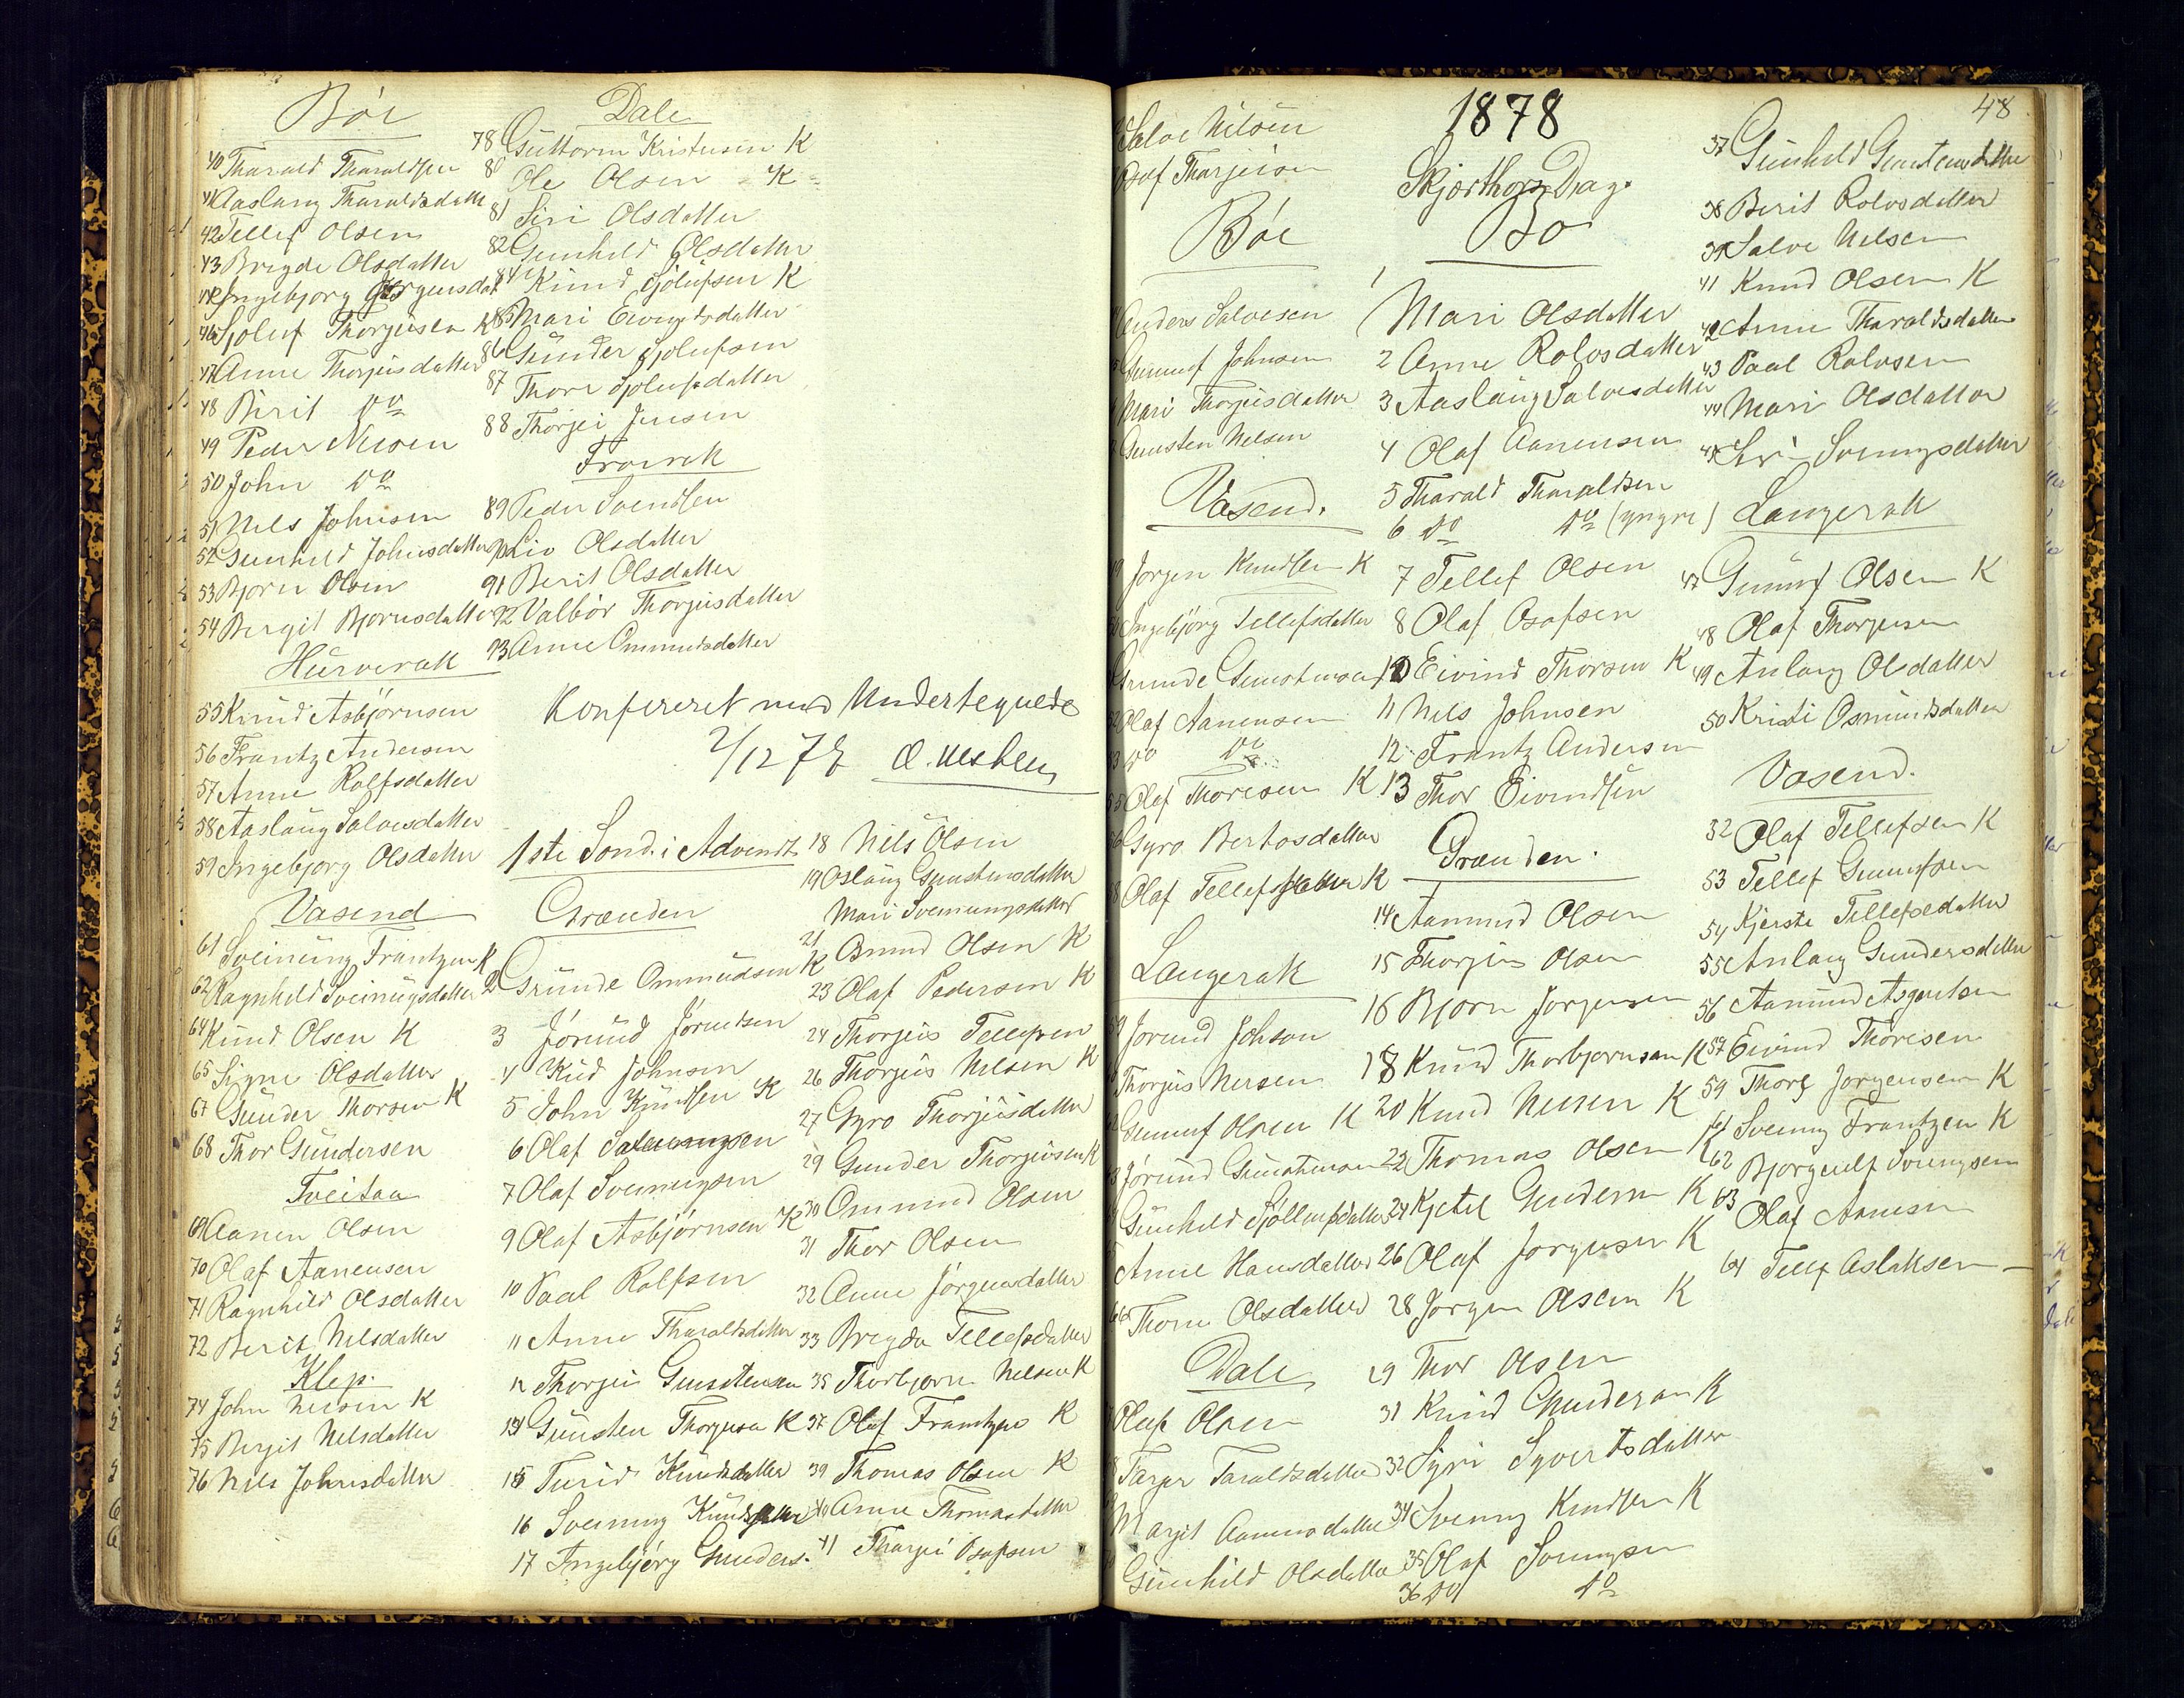 Bøe
40 Tharald Tharaldsen
41 Aaslaug Tharaldsdatter
42 Tellef Olsen
43 Bregde Olsdatter
Ingebjorg Jørgensdat
46 Sjoluf Thorjusen K
47 Anne Thorjusdatter
48 Birit Do
49 Peder Nilsen
50 John Do
51 Nils Johnsen
52 Gunhild Johnsdatter
53 Bjorn Olsen
54 Bergit Bjornsdatter
Hurverak
55 Knud Asbjørnsen
56 Frantz Andersen
57 Anne Rolfsdatter
58 Aaslaug Salvesdatter
59 Ingebjorg Olsdatter
Vasend
61 Sveinung Frantzen K
62 Ragnhild Sveinungsdatter
64 Knud Olsen K
65 Signe Olsdatter
67 Gunder Thorsen K
68 Thor Gundersen
Tveitaa
69 Aanen Olsen
70 Olaf Aanensen
71 Ragnhild Olsdatter
72 Berit Nilsdatter
Klep.
74 John Nilsen K
75 Birgit Nilsdatter
76 Nils Johnsdatter
Dale
78 Guttorm Kristensen K
80 Ole Olsen K
81 Siri Olsdatter
82 Gunhild Olsdatter
84 Knud Sjolufsen K
85 Mari Eivindsdatter
86 Gunder Sjolufsen
87 Thore Sjolufsdatter
88 Thorjei Jensen
Froirak
89 Peder Svendsen
90 Liv Olsdatter
91 Berit Olsdatter
92 Valbør Thorjusdatter
93 Anne Ommundsdatter
Konfereret med Undertegnede
2/12 78
1ste Sønd. i Advendt
Grænden
2 Grunde Ommudsen K
3 Jørund Jørundsen
4 Knud Johnsen
5 John Knudsen K
6 Olaf
7 Olaf Sveinungsen
9 Olaf Asbjørnsen K
10 Paal Rolfsen
11 Anne Tharaldsdatter
12 Thorjei Gunstensen
14 Gunsten Thorjusen K
15 Turid Knudsdatter
16 Sveinung Knuds
17 Ingebjørg Gunders.
18 Nils Olsen
19 Oslaug Gunstensdatter
Mari Sveinungsdatter
21 Osmund Olsen K
23 Olaf Pedersen K
24 Thorjus Tellefsen
26 Thorjus Nilsen K
27 Gyro Thorjusdatter
29 Gunder Thorjusen K
30 Ommund Olsen
31 Thor Olsen
32 Anne Jørgensdatter
33 Bregda Tellefsdatter
35 Thorbjorn Nilsen K
37 Olaf Frantzen K
39 Thomas Olsen K
40 Anne Thomasdatter
41 Thorjei Osufsen
48
Salve Nilsen
Osuf Tharjeisen
Bøe
Anders Salvesen
Gunnuf Johnsen
Mari Thorjusdatter
Gunsten Nilsen
Vasend.
Jørgen Knudsen K
Ingebjörg Tellefsdatter
Grunde Gunstensen
Olaf Aanensen
Do Do
Olaf Thoresen K
Gyro Berthosdatter
Olaf Tellefs K
Langerak
Jorund Johson
Thorjus Nilsen
Gunnuf Olsen K
Jorund Gunstensen
Gunhild Sjöllufsdatter
Anne Hansdatter
66 Thore Olsdatter
Dale
Oluf Olsen
Targer Taraldsdatter
Margit Aanensdatter
Gunhild Olsdatter
1878
Skjærthors Dag.
Bø
1 Mari Olsdatter
2 Anne Rolvsdatter
3 Aaslaug Salvesdatter
4 Olaf Aanensen
5 Tharald Tharaldsen
6 Do Do (yngre)
7 Tellef Olsen
8 Olaf Osofsen
10 Eivind Thorsen K
11 Nils Johnsen
12 Frantz Andersen
13 Thor Eivindsen
Grænden.
14 Aanund Olsen
15 Thorjus Olsen
16 Bjorn Jorgensen
18 Knud Thorbjornsen K
20 Knud Nilsen K
22 Thomas Olsen K
24 Kjetil Gundersen K
26 Olaf Jorgensen K
28 Jorgen Olsen K
29 Thor Olsen
31 Knud Gundersen K
32 Syri Syvertsdatter
34 Sveinung Knudsen K
35 Olaf Sveinungsen
36 Do Do
37 Gunhild Gunstensdatter
38 Berit Rolvsdatter
39 Salve Nilsen
41 Knud Olsen K
42 Anne Tharaldsdatter
43 Paal Rolvsen
44 Mari Olsdatter
45 Siri Sveinungsdatter
Langerak
47 Gunnuf Olsen K
48 Olaf Thorjusen
49 Aslaug Olsdatter
50 Kristi Osmundsdatter
Vasend.
52 Olaf Tellefsen K
53 Tellef Gunnufsen
54 Kjersti Tellefsdatter
55 Aslaug Gundersdatter
56 Aanund Asgautsen
57 Eivind Thoresen
59 Thore Jorgensen K
61 Sveinung Frantzen K
62 Bjorgulf Sveinungsen
63 Olaf Aanesen
64 Tellef Aslaksen